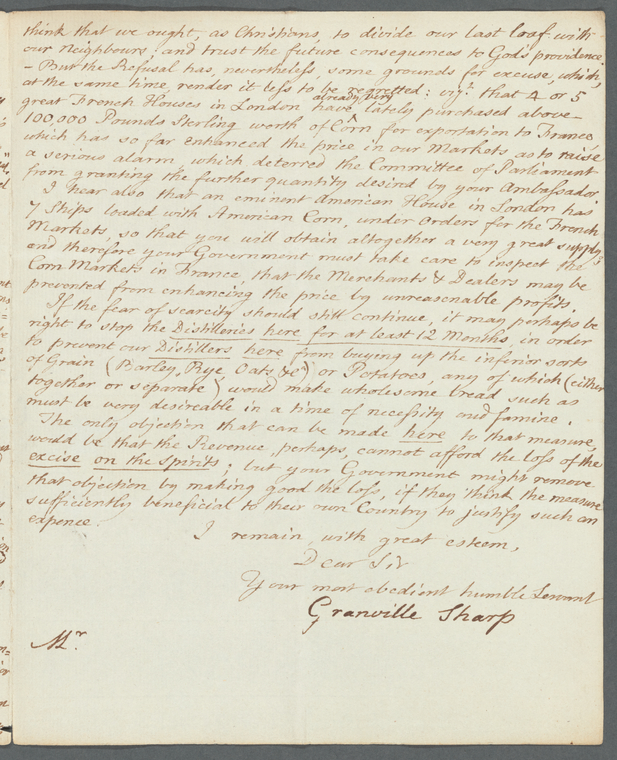 think that we ought, as Christians, to divide our last loaf with
our Neighbours and trust the future consequences to God's providence.
– But the Refusal has, nevertheless, some grounds for excuse, which,
at the same time, render it less to be regretted: vizt. that 4 or 5
great French Houses in London have already very lately purchased above
100,000 Pounds Sterling worth of Corn for exportation to France,
which has so far enhanced the price in our Markets as to raise
a serious alarm, which deterred the Committee of Parliament
from granting the further quantity desired by your Ambassador
I hear also that an eminent American House in London has
7 Ships loaded with American Corn, under Orders for the French
Markets, so that you will obtain altogether a very great supply;
and therefore your Government must take care to inspect the
Corn Markets in France, that the Merchants & Dealers may be
prevented from enhancing the price by unreasonable profits.
If the fear of scarcity should still continue, it may perhaps be
right to stop the Distilleries here for at least 12 Months, in order
to prevent our Distillers here from buying up the inferior sorts
of Grain (Barley, Rye, Oats &c.) or Potatoes, any of which (either
together or separate) would make wholesome bread such as
must be very desireable in a time of necessity and famine.
The only objection that can be made here to that measure,
would be that the Revenue, perhaps, cannot afford the loss of the
excise on the spirits; but your Government might remove
that objection by making good the loss, if they think the measure
sufficiently beneficial to their own Country to justify such an
expence
I remain with great esteem,
Dear Sir
Your most obedient humble Servant
Granville Sharp
Mr.